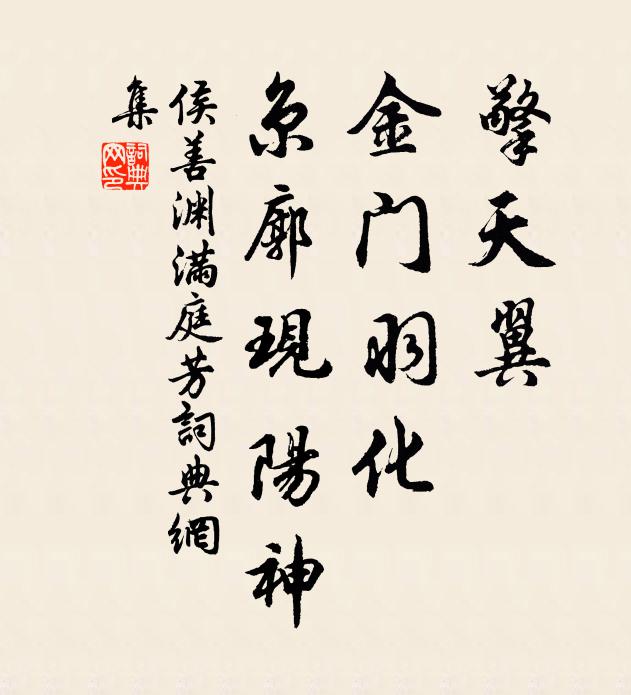 擎天翼
金门羽化
京廓現陽神
侯善渊滿庭芳詞典網
集
詞典
网印